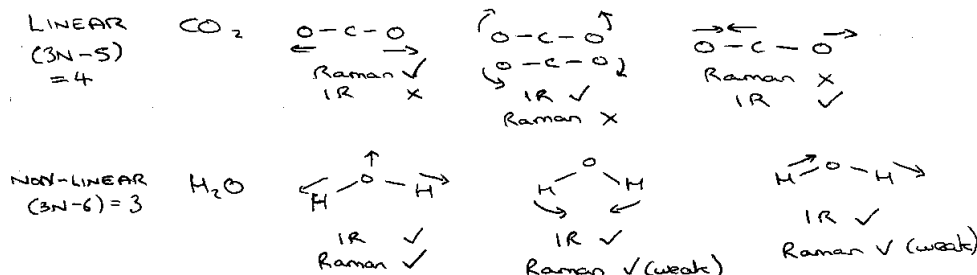 LINEAR
(3N-5)
=4
CO2
O-C-O
Raman ✓
IR ×
O-C-O
O-C-O
IR ✓
Raman ×
O-C-O
Raman ×
IR ✓
NON-LINEAR
(3N-6)=3
H2O
H O H
IR ✓
Raman ✓
H O H
IR ✓
Raman ✓ (weak)
H O H
IR ✓
Raman ✓ (weak)